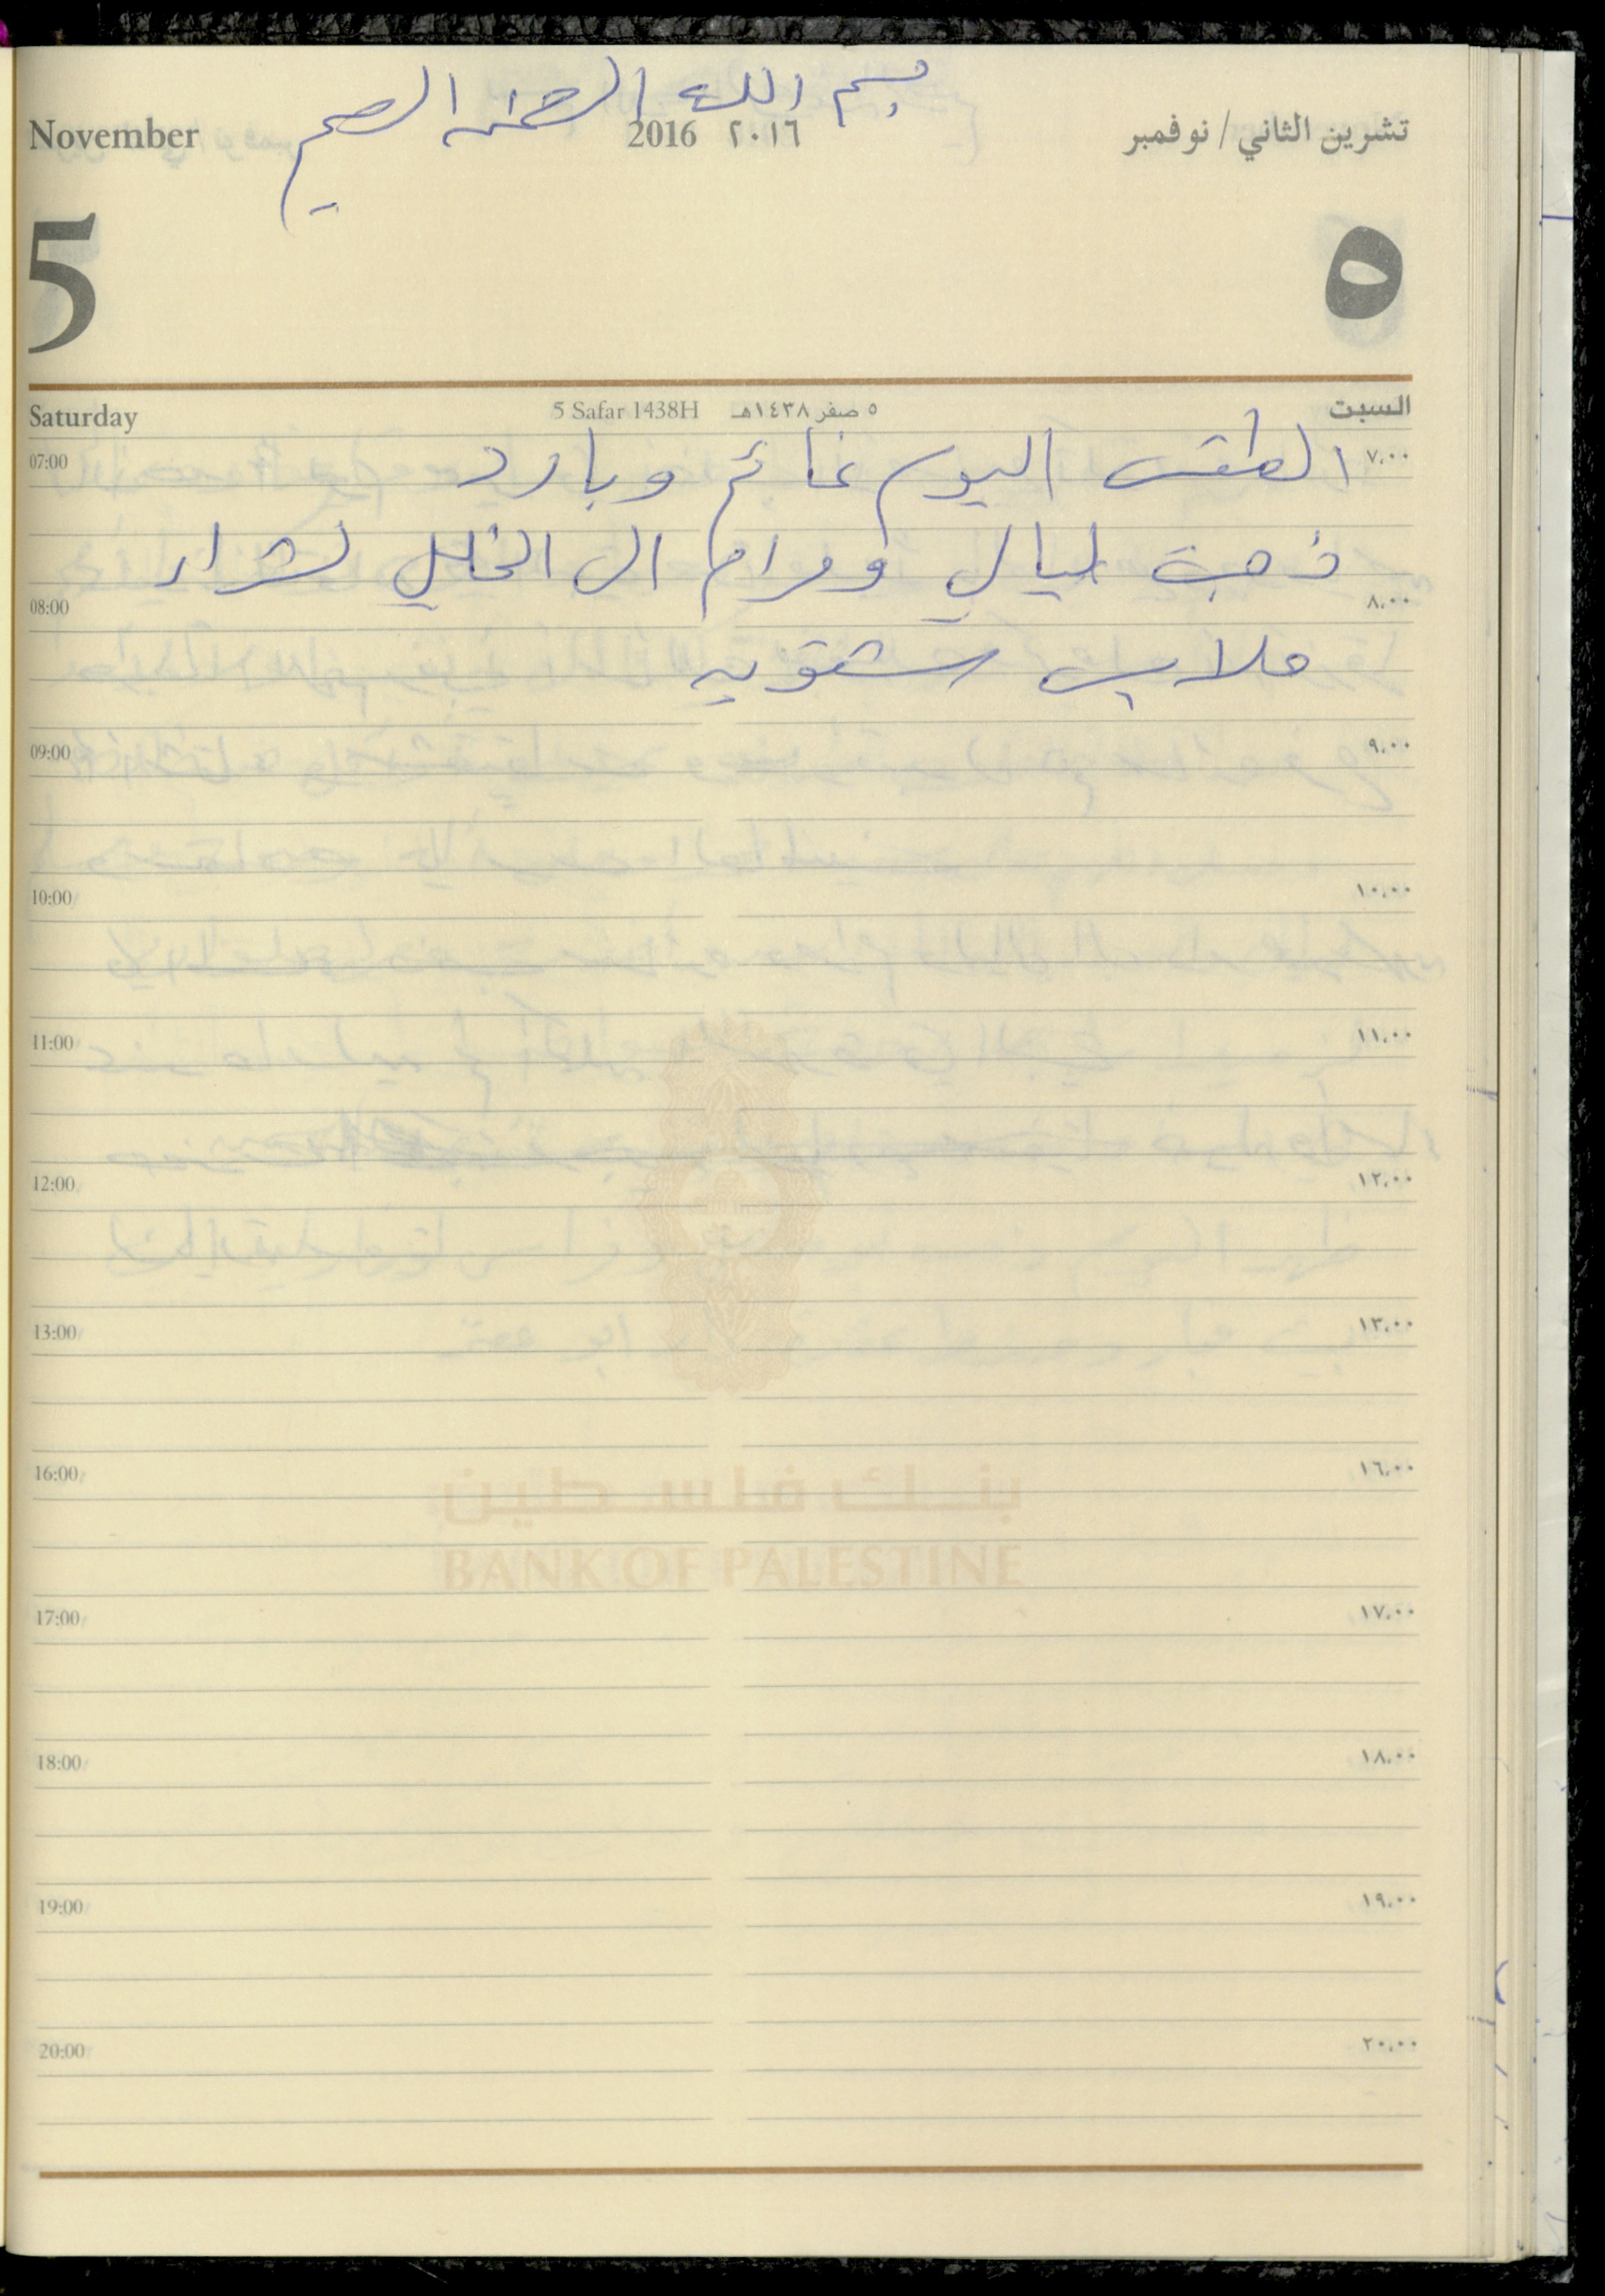 بسم الله الرحمن الرحيم
November 2016 ٢٠١٦ تشرين الثاني / نوفمبر
5 ٥
Saturday 5 Safar 1438H ٥ صفر ١٤٣٨هـ السبت
07:00 الطقس اليوم غائم وبارد ٧،٠٠
ذهبت ليالي ومرام الى الخليل لشراء
08:00 ٨،٠٠
ملابس شتويه
09:00 ٩،٠٠
10:00 ١٠،٠٠
11:00 ١١،٠٠
12:00 ١٢،٠٠
13:00 ١٣،٠٠
16:00 ١٦،٠٠
بنك فلسطين
BANK OF PALESTINE
17:00 ١٧،٠٠
18:00 ١٨،٠٠
19:00 ١٩،٠٠
20:00 ٢٠،٠٠